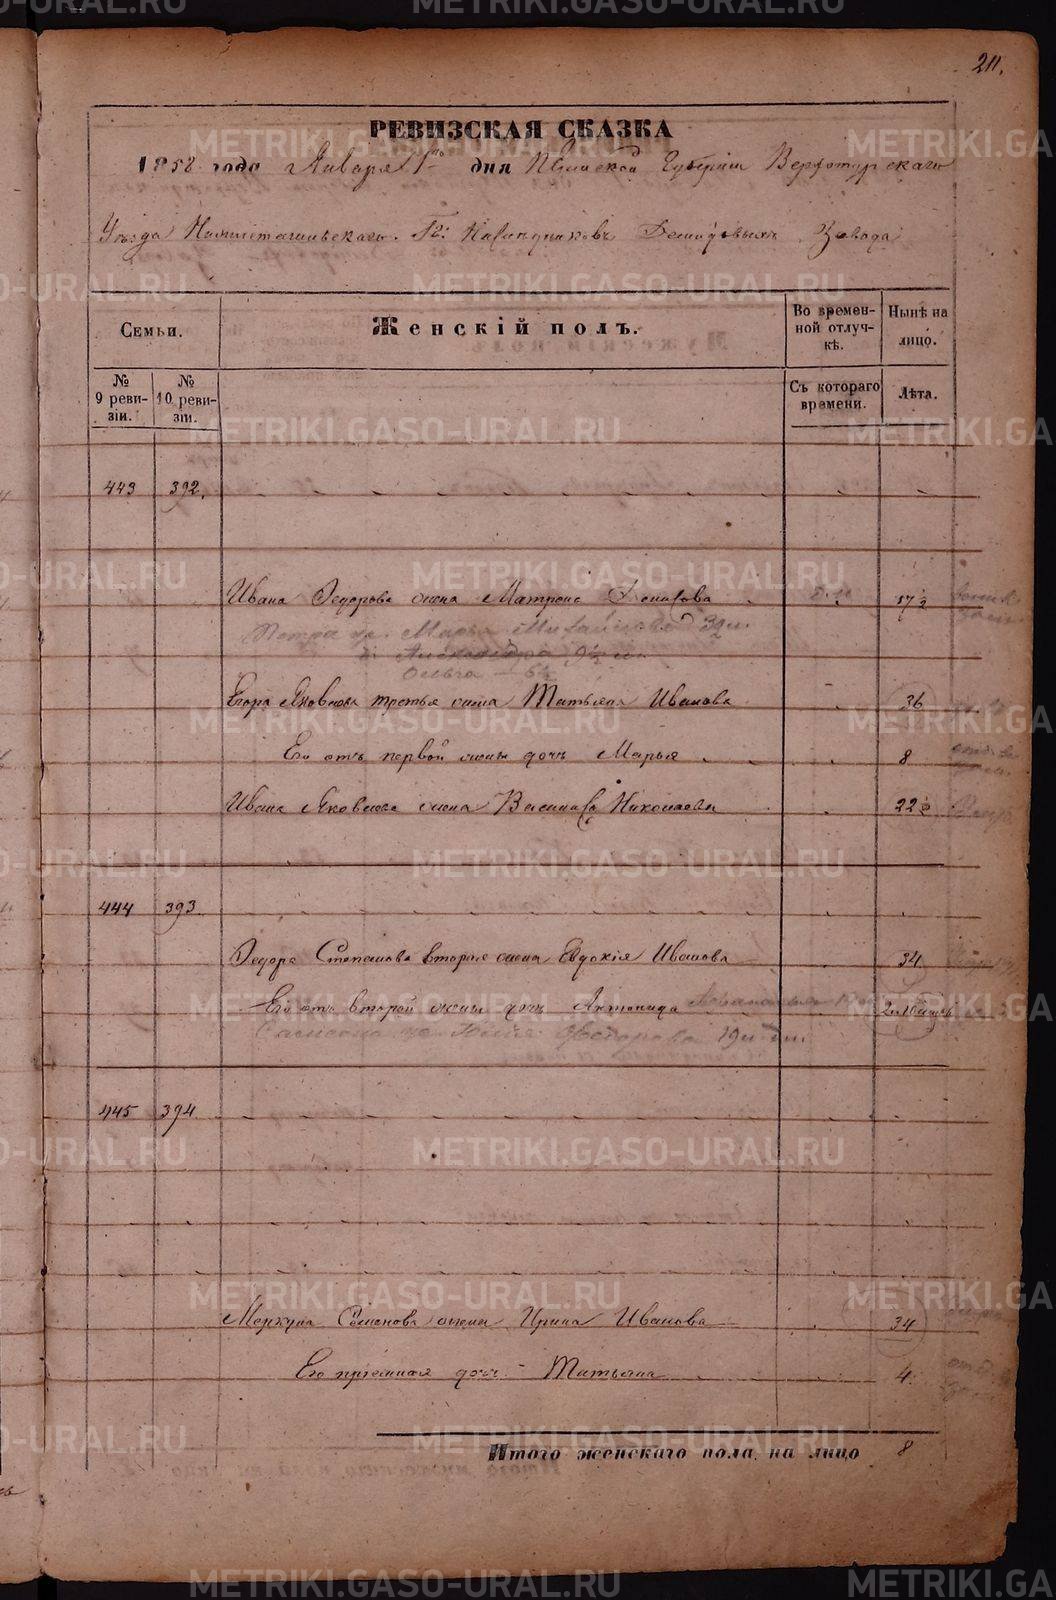 211.
РЕВИЗСКАЯ СКАЗКА
1858 года Января 1го дня Пермской Губерніи Верхотурскаго
Уѣзда Нижнетагильскаго Гг. Наслѣдниковъ Демидовыхъ Завода
Семьи.
Женскій полъ.
Во времен-
ной отлуч-
кѣ.
Нынѣ на
лицо.
№
9 реви-
зіи.
№
10 реви-
зіи.
Съ котораго
времени.
Лѣта.
443 392.
Ивана Федорова жена Матрона Денисова 17½
Петра ж. Марья 39
Александра 9½
Ольга 6½
Егора Яковлева третья жена Татьяна Иванова 36
Его отъ первой жены дочь Марья 8
Ивана Яковлева жена Василиса Николаева 22½
444 393
Федора Степанова вторая жена Евдокія Иванова 34
Его отъ второй жены дочь Антонида
Федорова 19
445 394
Меркула Семенова жена Ирина Иванова 34
Его пріемная дочь Татьяна 4
Итого женскаго пола на лицо 8
METRIKI.GASO-URAL.RU